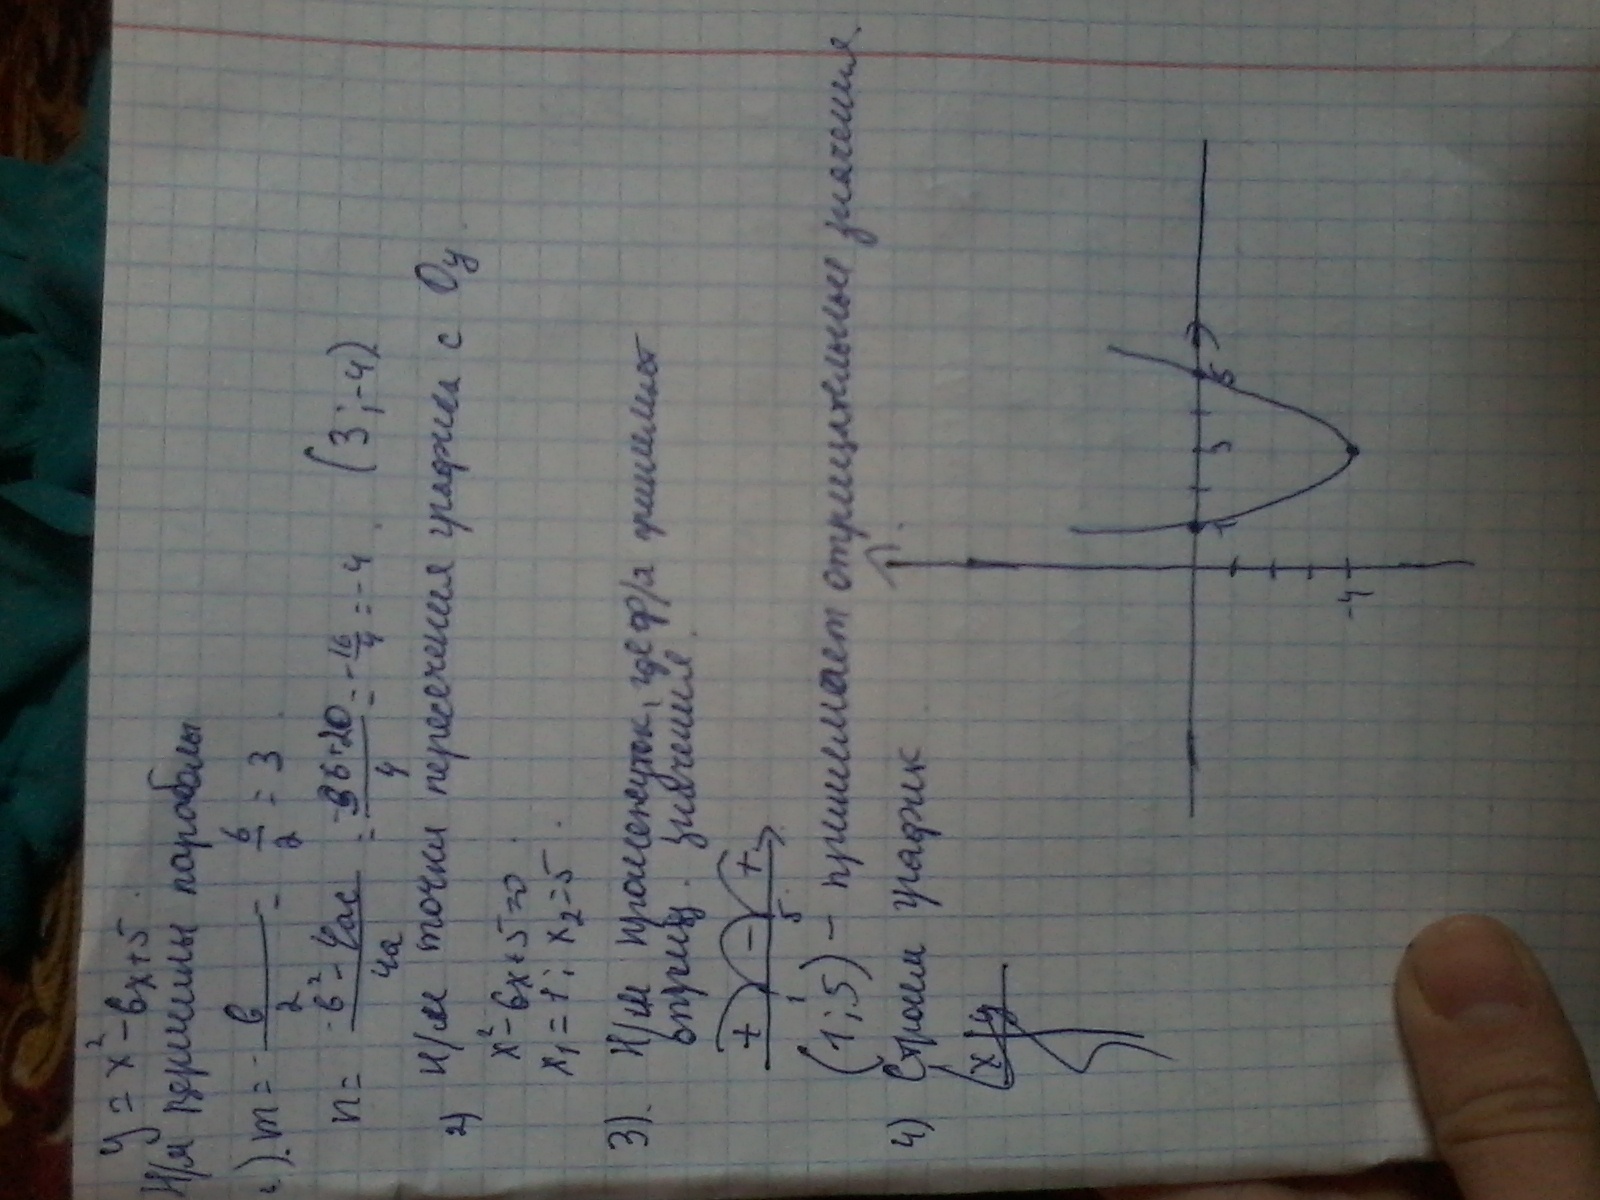 y = x² - 6x + 5.
Н/м вершины параболы
1). m = -b/2 = 6/2 = 3
n = -b² - 4ac/4a = -36+20/4 = -16/4 = -4. (3; -4)
2) Н/м точки пересечения графика с Oy.
x² - 6x + 5 = 0.
x₁ = 1; x₂ = 5.
3). Н/м промежуток, где ф/я
отриц. значения.
+ - +
1 5
(1; 5) - принимает отрицательные значения.
4) Строим график
x y
1 3 5
-4